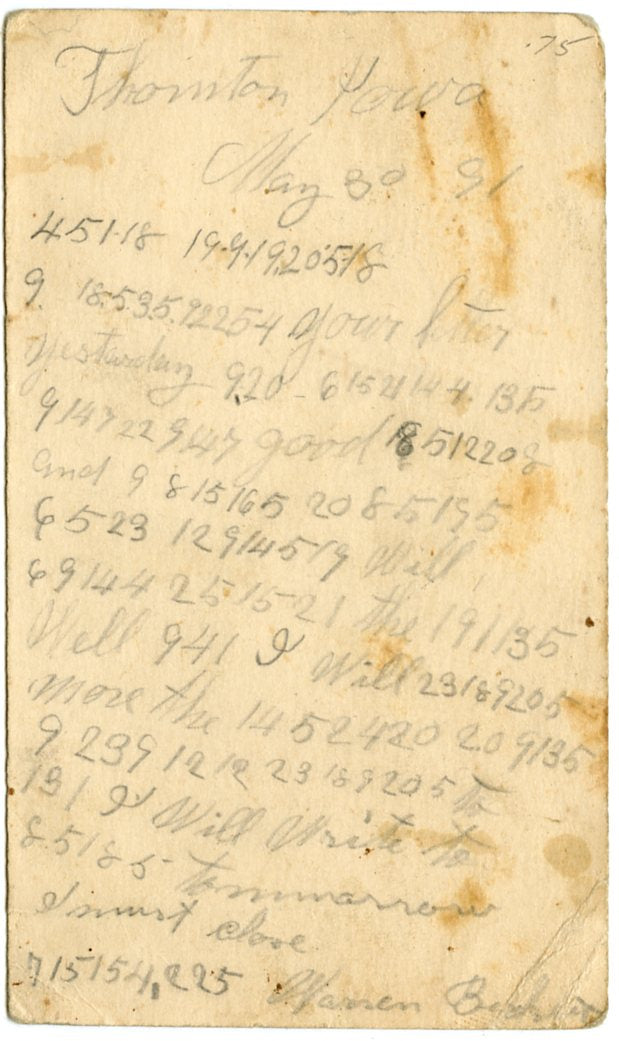 .75
Thornton Iowa
May 30 91
4.51.18 19.9.19.205.18
9 18.5.35.922254 your letter
yesterday 920 - 61521144 135
9147 22 9147 good 8512208
and 9 815165 208519 5
6523 12914519 Will
69144 251521 the 191135
Well 941 I Will 23189205
more the 1452420 209135
9 2391212 23189205 to
131 I Will Write to
85185 tommarrow
I must close
715154,225 Warren